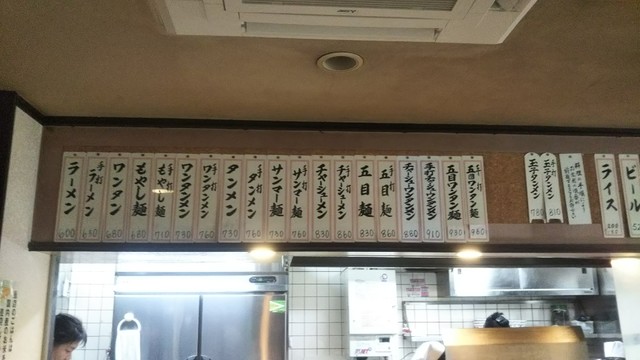 ラーメン 600
手打ラーメン 630
ワンタン 680
もやし麺 680
手打もやし麺 710
ワンタンメン 730
手打ワンタンメン 760
タンメン 730
手打タンメン 760
サンマー麺 730
手打サンマー麺 760
チャーシューメン 830
手打チャーシューメン 860
五目麺 830
手打五目麺 860
チャーシューワンタンメン 880
手打チャーシューワンタンメン 910
五目ワンタン麺 930
手打五目ワンタン麺 960
玉子タンメン 780
手打玉子タンメン 810
ライス
ビール